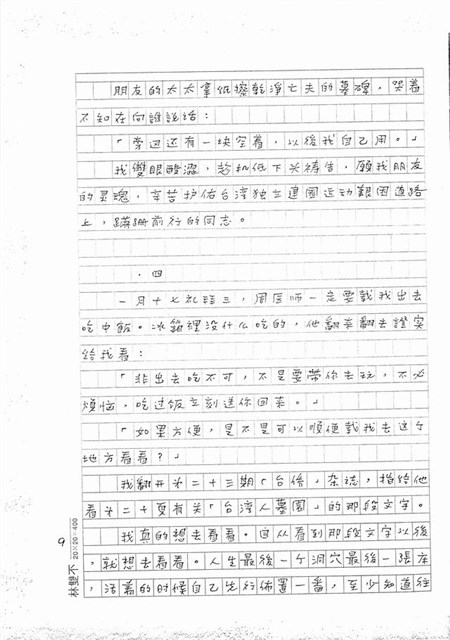 朋友的太太拿纸擦乾淨亡夫的墓碑，哭着
不知在向誰說話：
「旁边还有一块空着，以後我自己用。」
我雙眼酸澀，趁机低下头祷告，願我朋友
的灵魂，辛苦护佑台湾独立建國运动艱困道路
上，蹒跚前行的同志。
．四
一月十七礼拜三，周医师一定要載我出去
吃中飯。冰箱裡没什么吃的，他翻來翻去證实
给我看：
「非出去吃不可，不是要带你去玩，不必
煩恼。吃过饭立刻送你回来。」
「如果方便，是不是可以順便載我去这个
地方看看？」
我翻开第二十三期「台侨」杂誌，指给他
看第二十頁有关「台湾人墓園」的那段文字。
我真的想去看看。自从看到那段文字以後
，就想去看看。人生最後一个洞穴最後一張床
，活着的时候自己先行佈置一番，至少知道往
9
林雙不 20×20=400